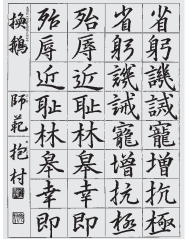 省躬譏誡寵增抗極
省躬譏誡寵增抗極
殆辱近耻林皋幸即
殆辱近耻林皋幸即
換鵝 師範 抱村